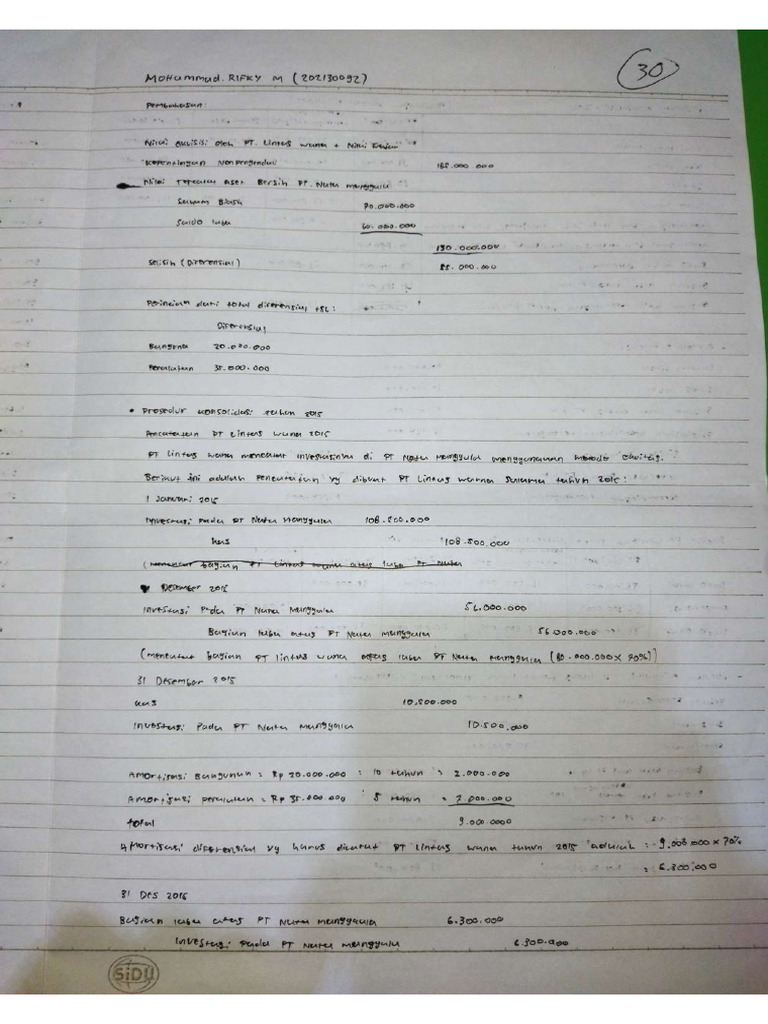 30
MOHummad. RIFKY M (202130092)
Pembahasan:
Nilai akuisisi oleh PT. Lintas warna + Nilai
Kepentingan Nonpengendali 185.000.000
Nilai Tercatat Aset Bersih PT. Nata Manggala
Saham Biasa 70.000.000
Saldo laba 60.000.000
130.000.000
Selisih (Diferensial) 55.000.000
Perincian dari total diferensial tsb:
Diferensial
Bangunan 20.000.000
Peralatan 35.000.000
• Prosedur konsolidasi tahun 2015
Pencatatan PT Lintas warna 2015
PT Lintas warna mencatat investasinya di PT Nata Manggala menggunakan metode ekuitas.
Berikut ini adalah pencatatan yg dibuat PT Lintas warna selama tahun 2015:
1 Januari 2015
Investasi Pada PT Nata Manggala 108.500.000
kas 108.500.000
(mencatat bagian PT Lintas warna atas laba PT Nata
Desember 2015
Investasi Pada PT Nata Manggala 56.000.000
Bagian laba atas PT Nata manggala 56.000.000
(mencatat bagian PT Lintas warna atas laba PT Nata Manggala (80.000.000 x 70%))
31 Desember 2015
kas 10.500.000
Investasi Pada PT Nata Manggala 10.500.000
Amortisasi Bangunan = Rp 20.000.000 : 10 tahun = 2.000.000
Amortisasi peralatan = Rp 35.000.000 5 tahun = 7.000.000
total 9.000.0000
Amortisasi diferensial yg harus dicatat PT Lintas warna tahun 2015 adalah : 9.000.000 x 70%
: 6.300.000
31 Des 2015
Bagian laba atas PT Nata manggala 6.300.000
Investasi pada PT Nata Manggala 6.300.000
SIDU